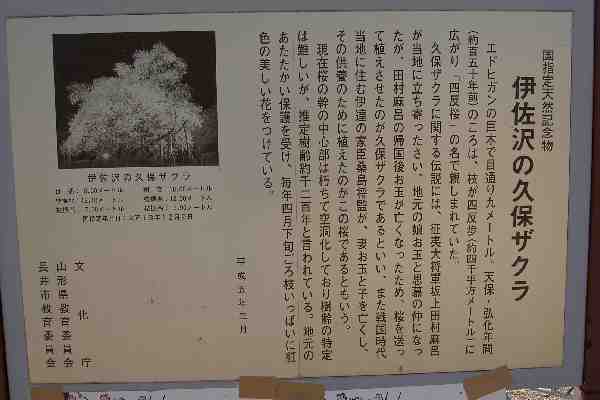 国指定天然記念物
伊佐沢の久保ザクラ
エドヒガンの巨木で目通り九メートル。天保・弘化年間
(約百五十年前)のころは、枝が四反歩(約四千平方メートル)に
広がり「四反桜」の名で親しまれていた。
久保ザクラに関する伝説には、征夷大将軍坂上田村麻呂
が当地に立ち寄ったさい、地元の娘お玉と思慕の仲になっ
たが、田村麻呂の帰国後お玉が亡くなったため、桜を送っ
て植えさせたのが久保ザクラであるといい、また戦国時代、
当地に住む伊達の家臣桑島将監が、妻お玉と子を亡くし、
その供養のために植えたのがこの桜であるともいう。
現在桜の幹の中心部は朽ちて空洞化しており樹齢の特定
は難しいが、推定樹齢約千二百年と言われている。地元の
あたたかい保護を受け、毎年四月下旬ごろ枝いっぱいに紅
色の美しい花をつけている。
平成五年三月
文化庁
山形県教育委員会
長井市教育委員会
伊佐沢の久保ザクラ